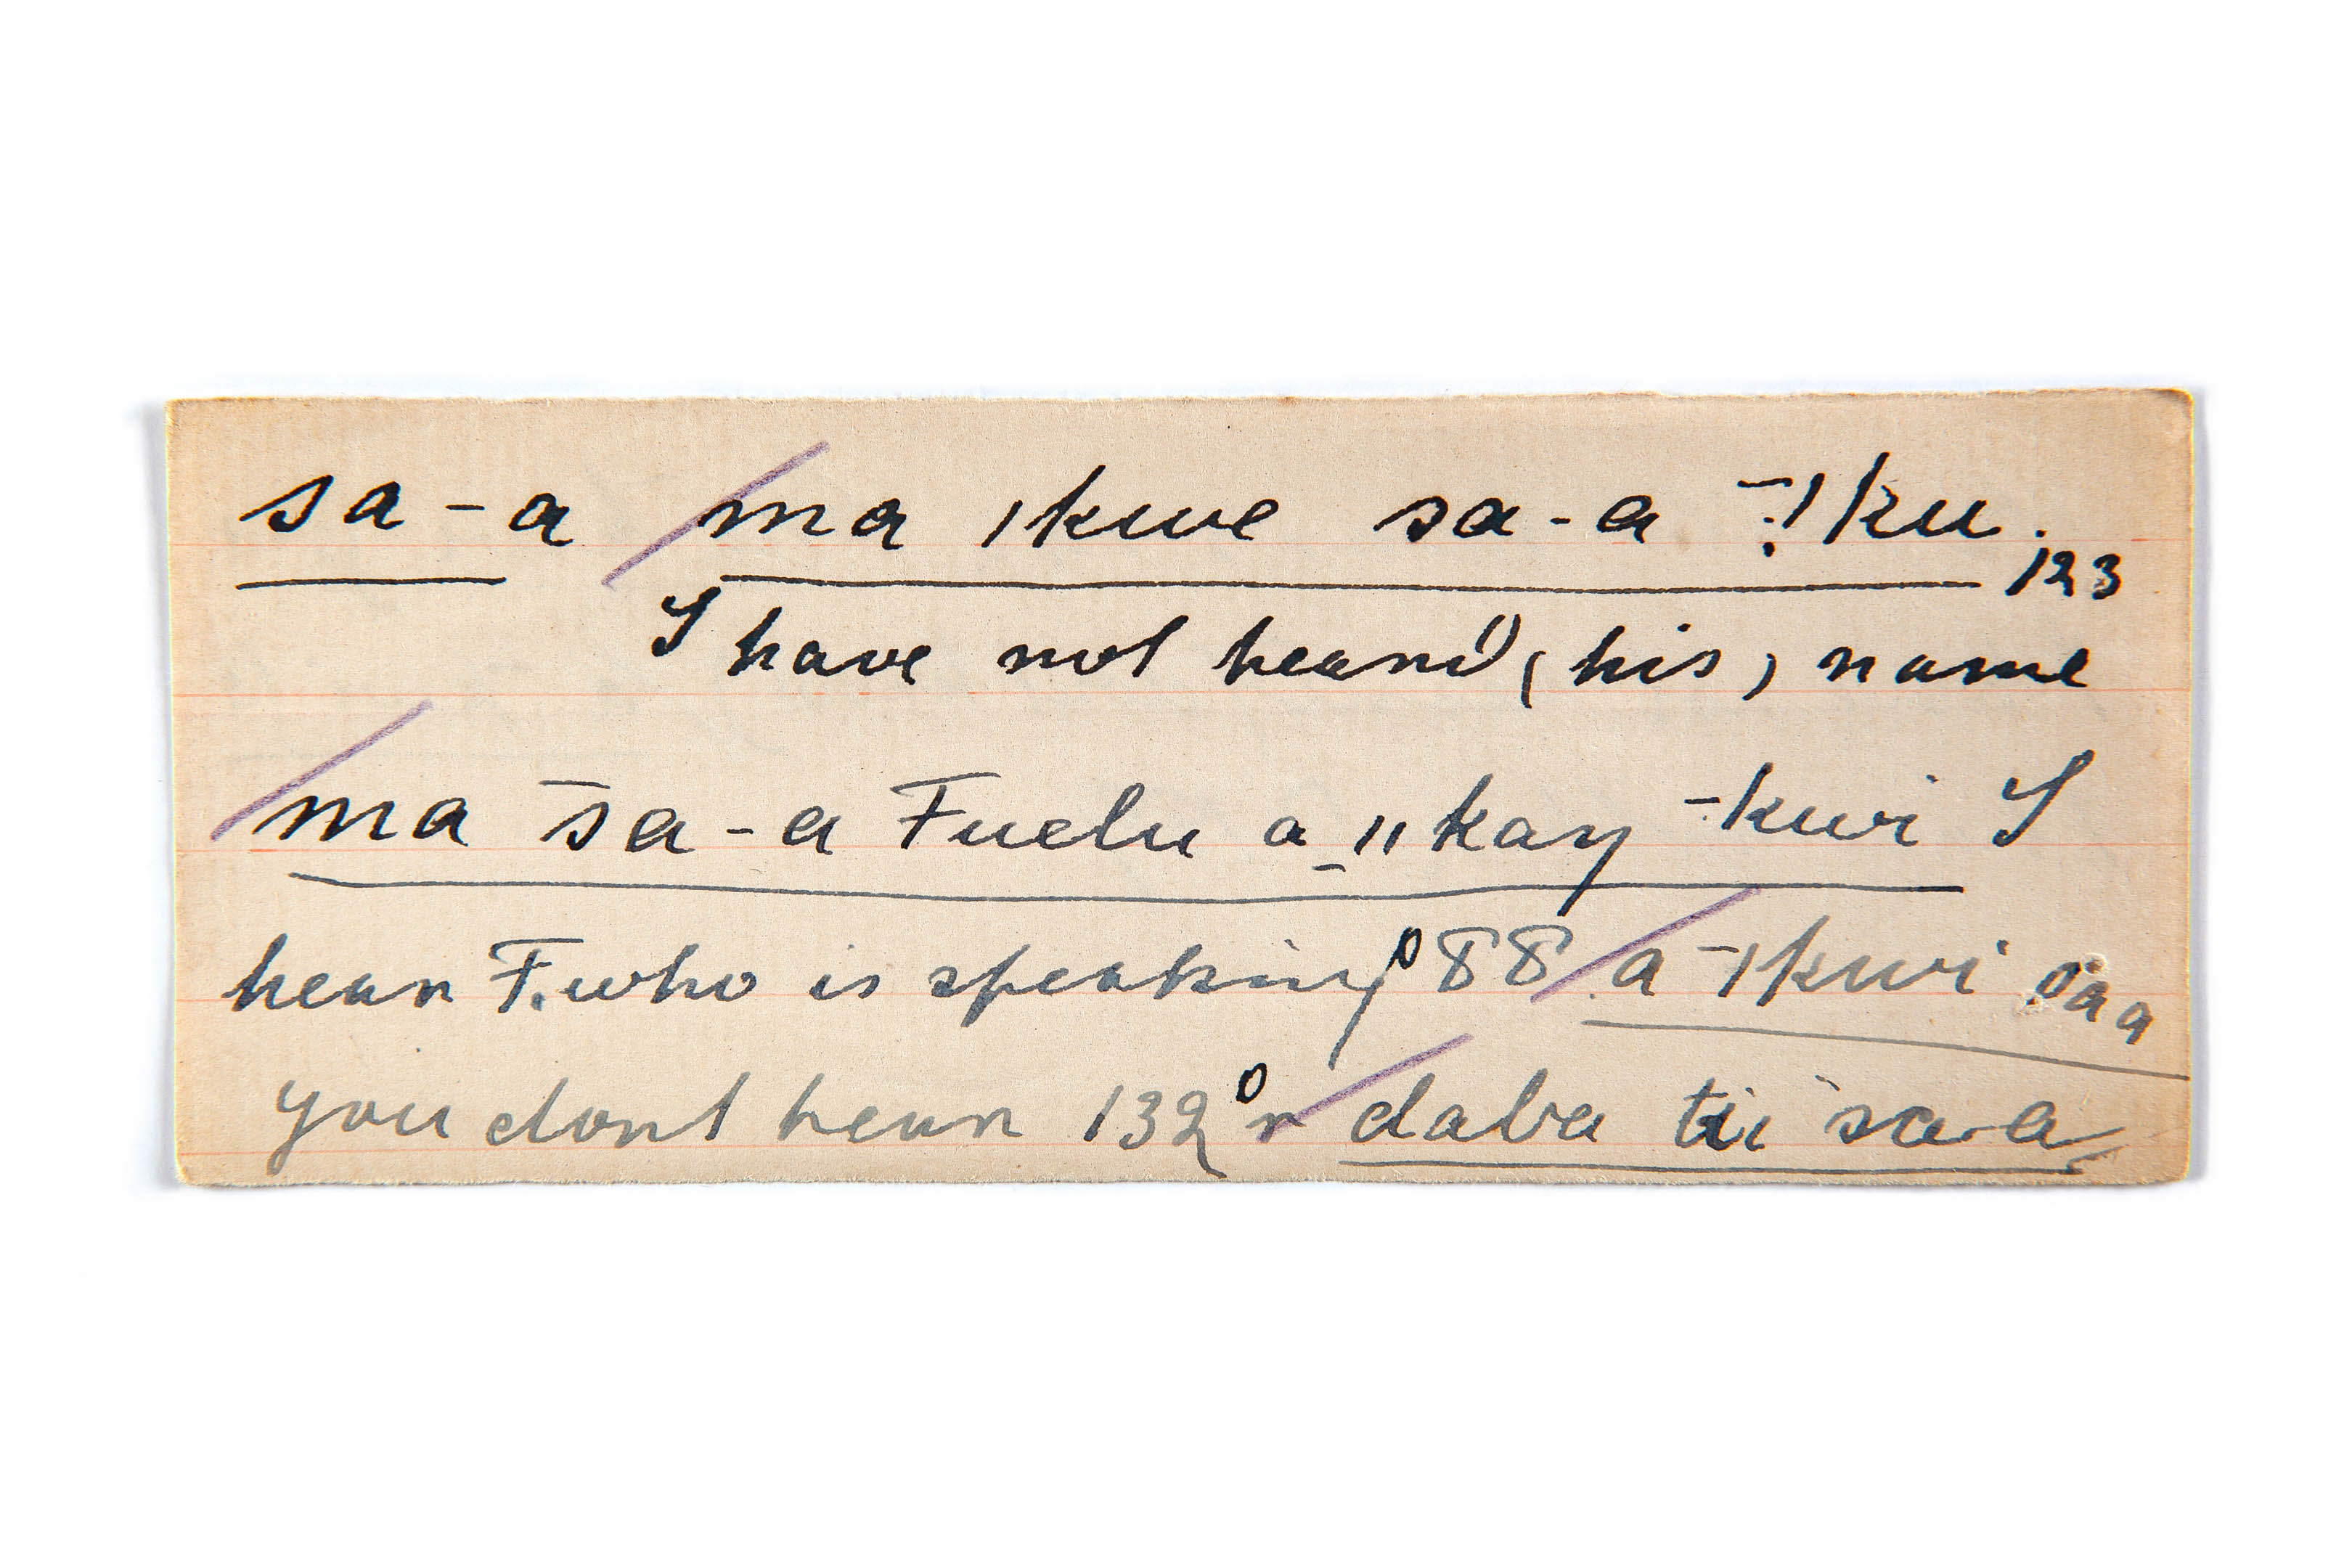 sa-a /ma ǀkwe sa-a ⁻̣!ku. 123
I have not heard (his) name
/ma ¯sa-a Fuelu a _ǁkaŋ ¯kwi I
hear F. who is speaking 88 /a ¯ǀkwi saa
you dont hear 132 / daba tii sa-a